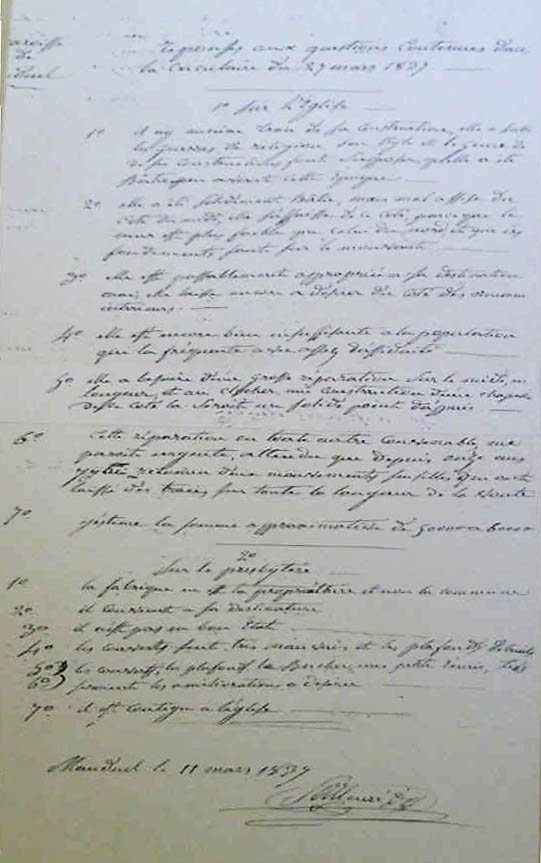 de
Reponses aux questions contenues dans
la circulaire du 27 mars 1837
1º Sur l'Eglise
1º il n'y aucune trace de sa construction, elle a subi
les guerres de religion son style et le genre
de sa construction font supposer qu'elle a été
avant cette époque
2º elle a été solidement batie, mais mal assise du
coté du midi, elle s'affaisse de ce coté, parceque le
mur est plus faible que celui du nord, et que ses
fondements sont sur le
3º elle est passablement appropriée a sa destination
mais elle laisse encore a désirer du coté des
interieurs.
4º elle est encore bien insuffisante a la population
que la fréquente avec assez d'assiduité
5º elle a besoin d'une grosse réparation sur le midi, en
longueur, et au une construction d'une chapelle
de ce coté la serait un solide point d'appui
6º Cette réparation ou toute autre convenable, me
parait urgente, attendu que depuis onze ans
mouvements sensibles qui ont
laissé des traces sur toute la longueur de la voute
7º j'estime la somme approximative de 5000 a 6000
2º
Sur le presbytère
1º la fabrique en est la propriétaire et non la commune
2º il convient a sa destination
3º il n'est pas en bon état
4º les couverts sont très mauvais et les plafonds
5º les couverts, les plafonds, une petite écurie,
6º seraient les améliorations a désirer
7º il est contigu a l'église
Manduel le 11 mars 1837